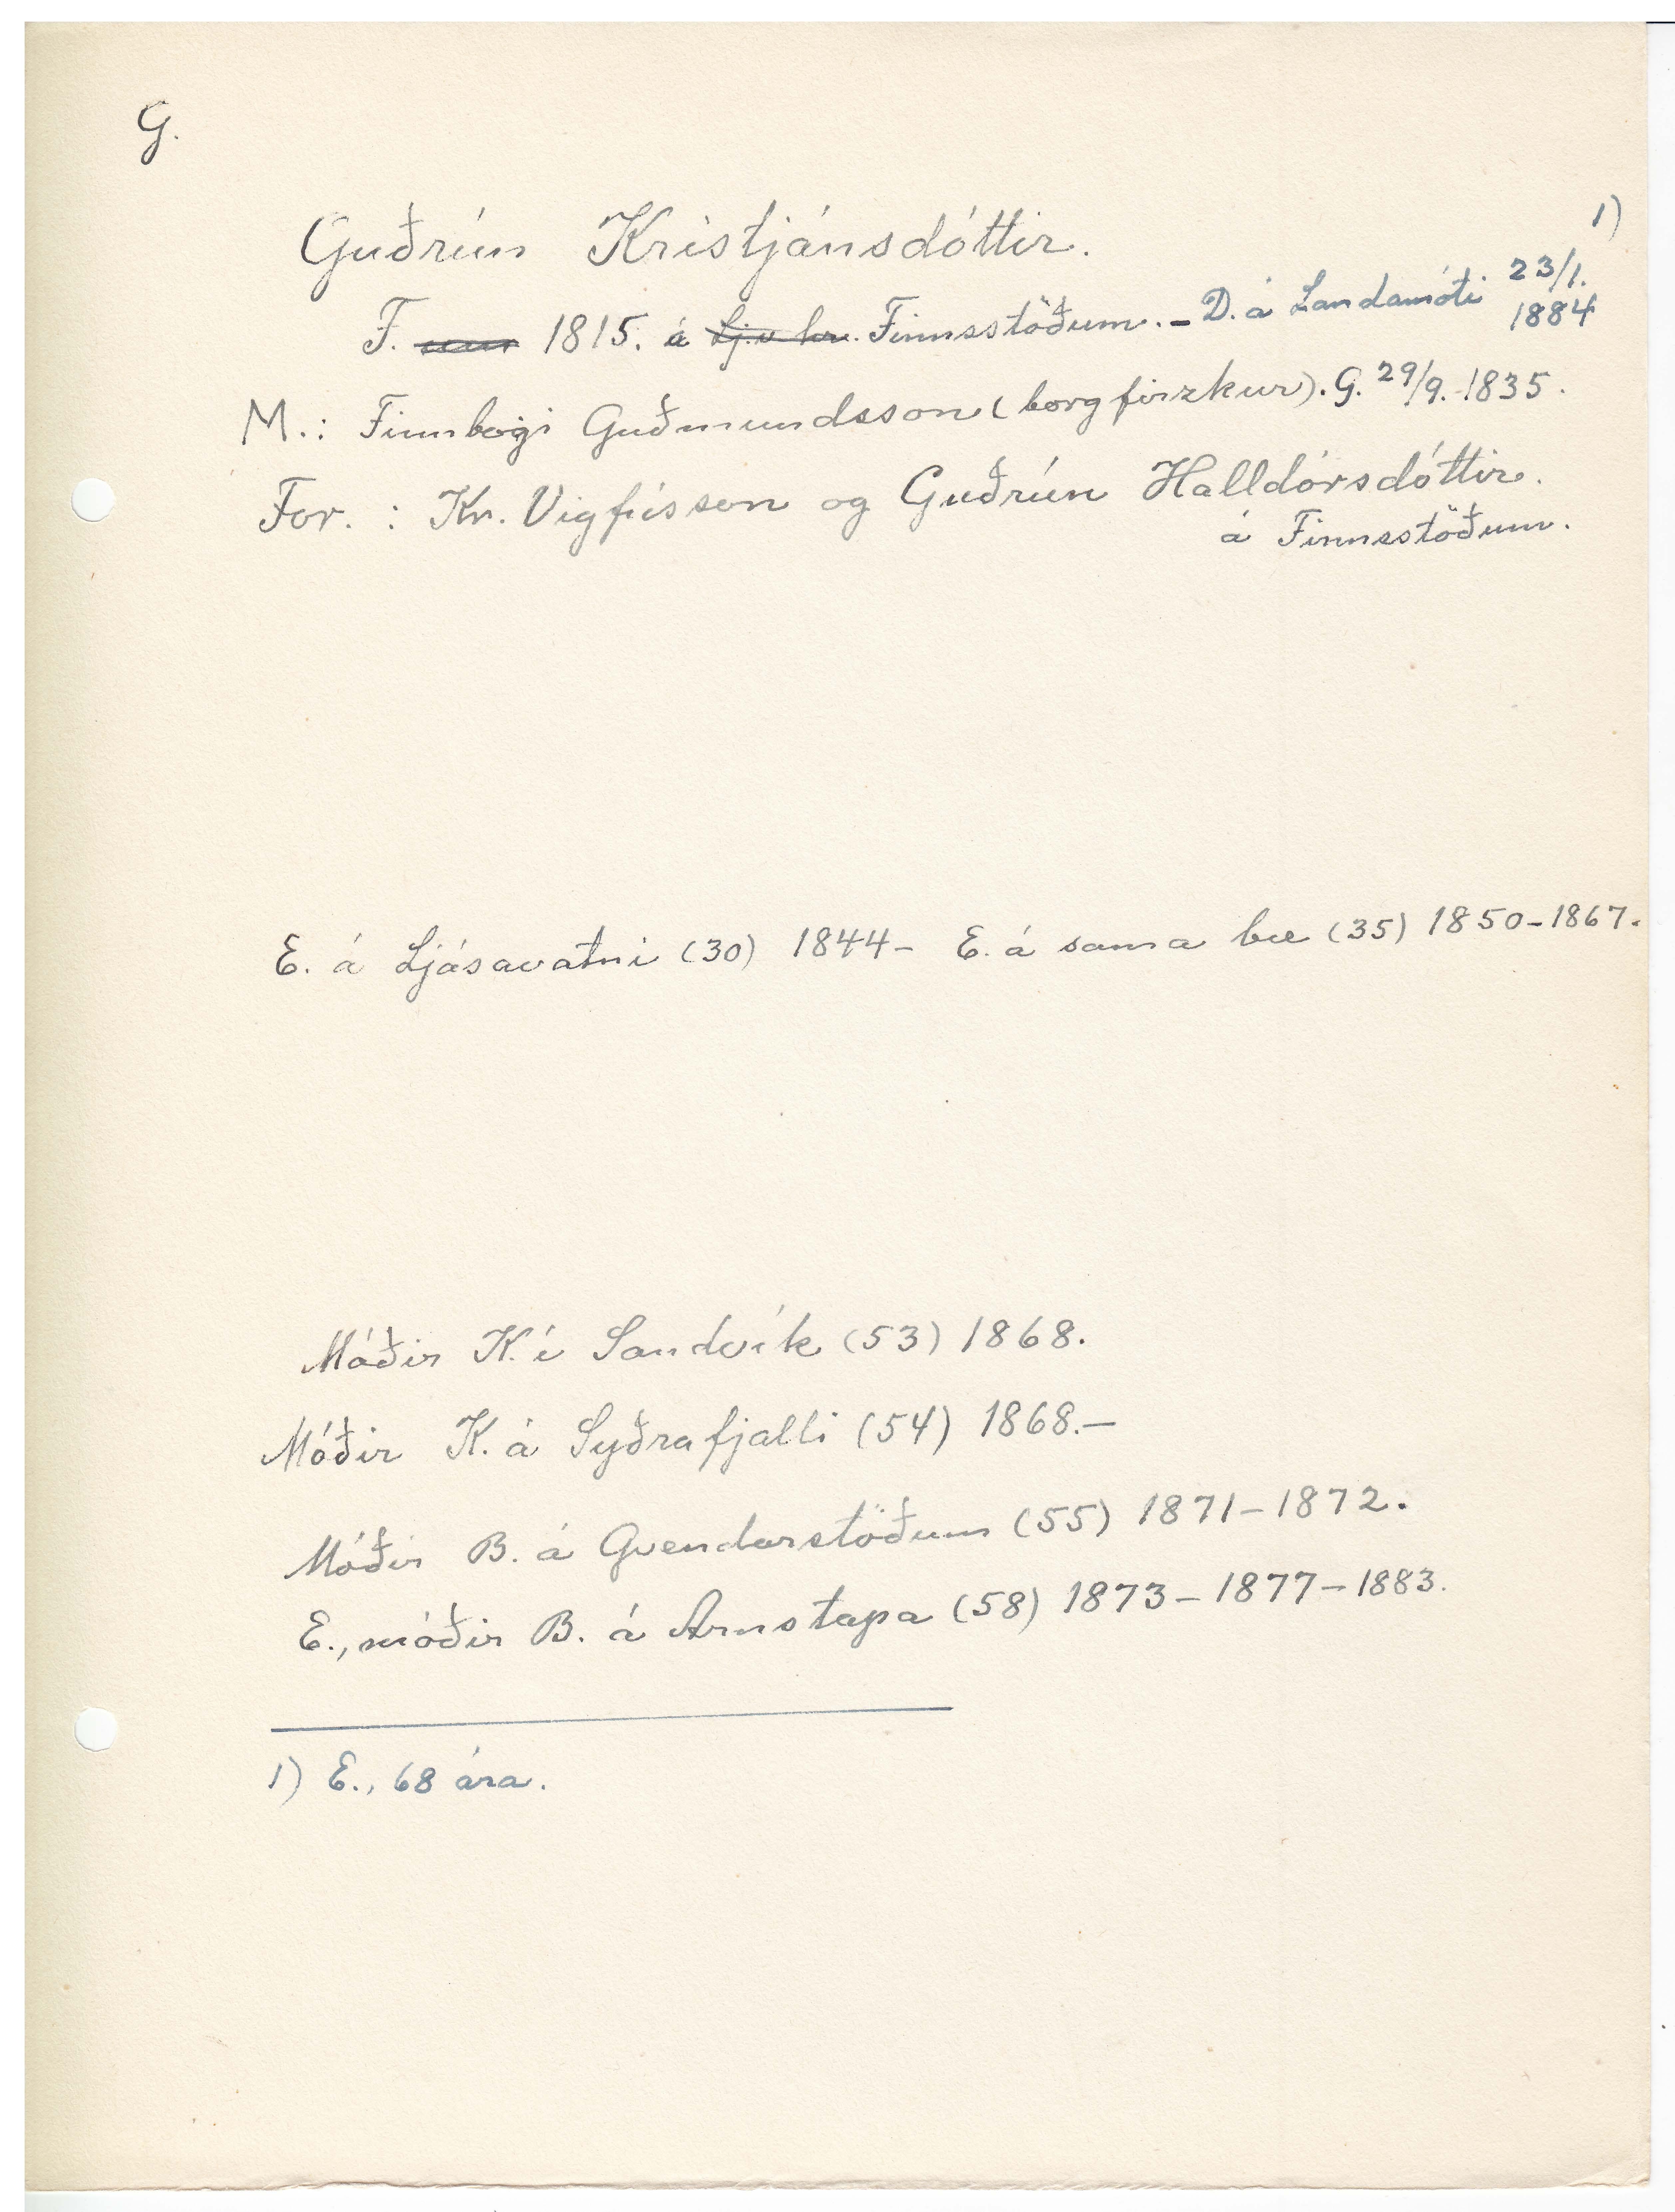 G.
Guðrún Kristjánsdóttir.
F. 1815. á Lj.v. hr. Finnsstöðum. - D. á Landamóti 23/1. 1884 1)
M.: Finnbogi Guðmundsson (borgfirzkur). G. 29/9. 1835.
For. : Kr. Vigfússon og Guðrún Halldórsdóttir.
á Finnsstöðum.
E. á Ljósavatni (30) 1844- E. á sama bæ (35) 1850-1867.
Móðir K. í Sandvík (53) 1868.
Móðir K. á Syðrafjalli (54) 1868.-
Móðir B. á Gvendarstöðum (55) 1871-1872.
E., móðir B. á Arnstapa (58) 1873-1877-1883.
1) E., 68 ára.